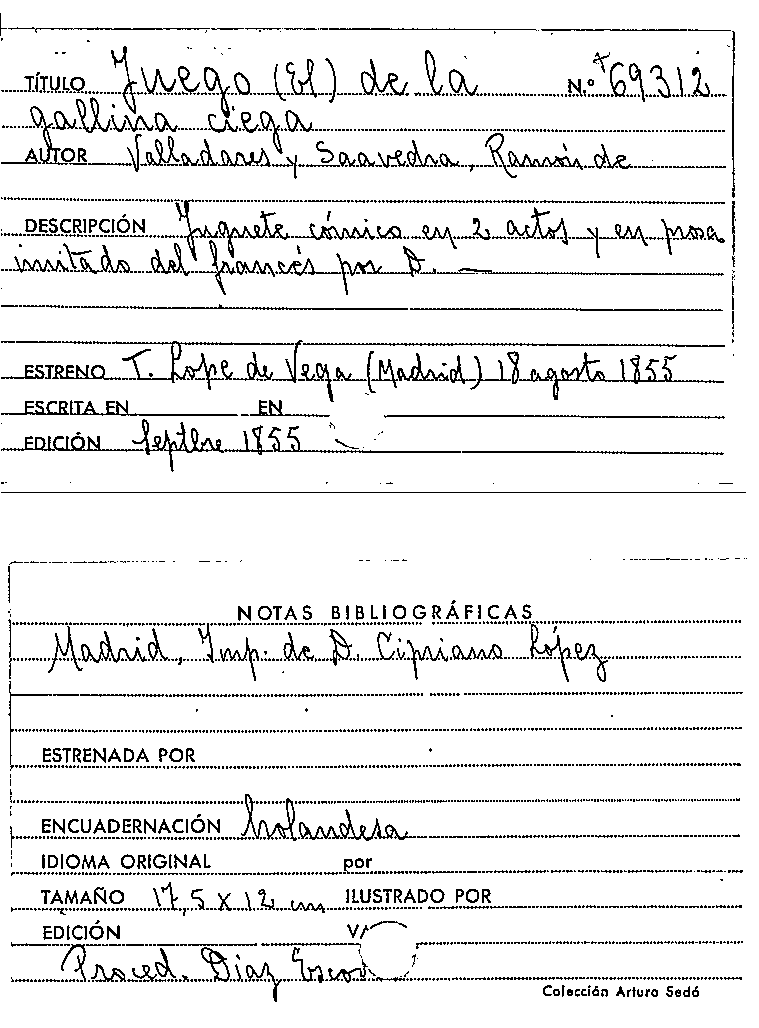 TÍTULO Juego (El) de la N.º 69312
gallina ciega
AUTOR Valladares y Saavedra, Ramón de
DESCRIPCIÓN Juguete cómico en 2 actos y en prosa
imitado del francés por D. —
ESTRENO T. Lope de Vega (Madrid) 18 agosto 1855
ESCRITA EN EN
EDICIÓN Septbre 1855
NOTAS BIBLIOGRÁFICAS
Madrid, Imp. de D. Cipriano López
ESTRENADA POR
ENCUADERNACIÓN holandesa
IDIOMA ORIGINAL por
TAMAÑO 17,5 x 12 cm ILUSTRADO POR
EDICIÓN
Proced. Díaz
Colección Arturo Sedó